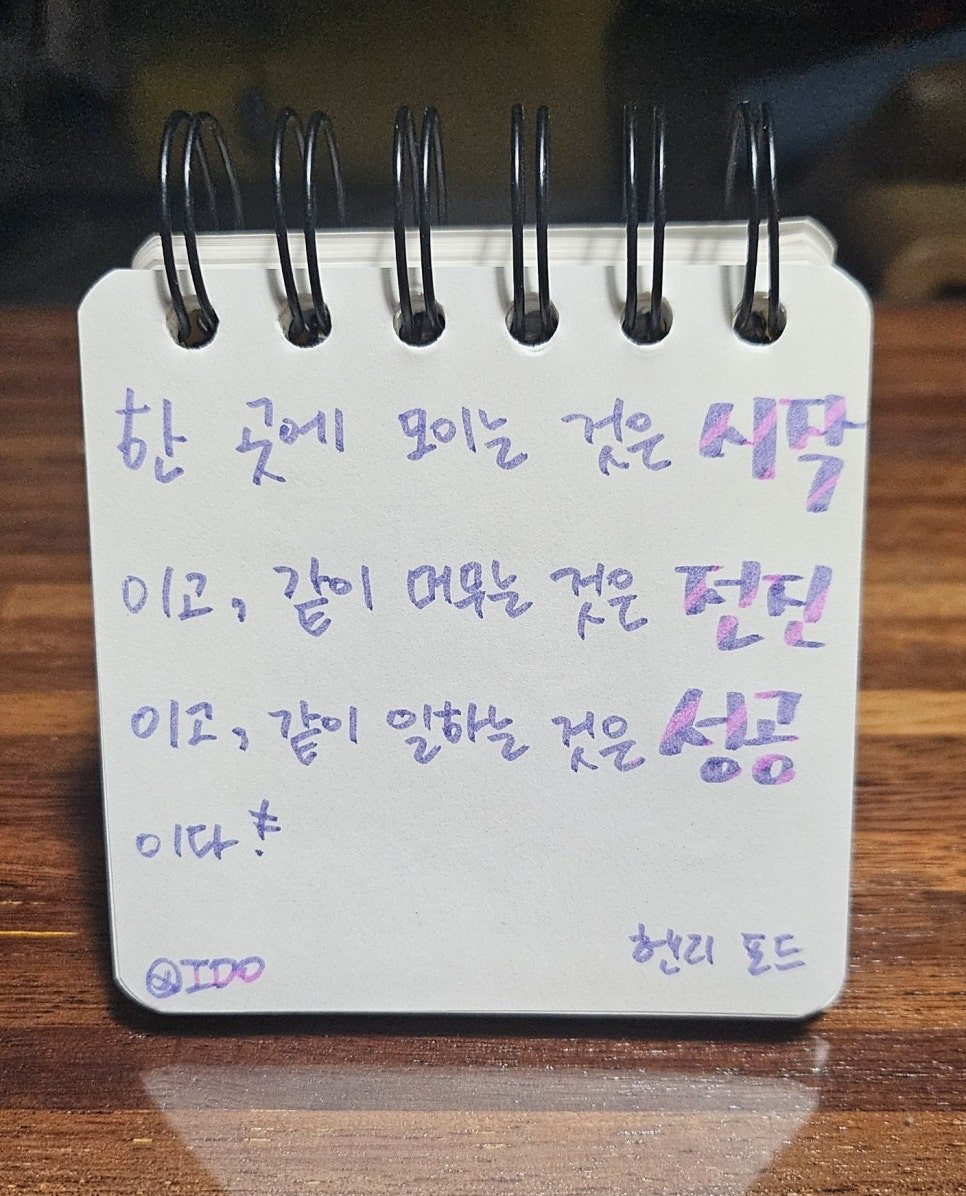 한 곳에 모이는 것은 시작
이고, 같이 머무는 것은 전진
이고, 같이 일하는 것은 성공
이다!
헨리 포드
@IDO